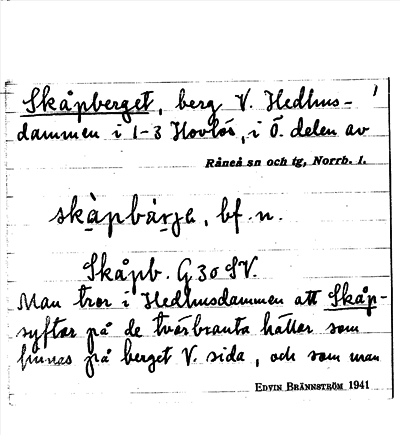 Skåpberget, berg V. Hedhus- 1
dammen i 1-3 Hovlös, i Ö. delen av
Råneå sn och tg, Norrb. l.
skàpbàrja, bf. n.
Skåpb. G 30 SV.
Man tror i Hedhusdammen att Skåp-
syftar på de tvärbranta hällar som
finnas på berget V. sida, och som man
EDVIN BRÄNNSTRÖM 1941